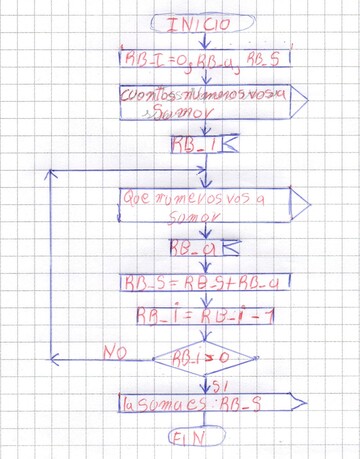 INICIO
RB_I=0, RB_a, RB_S
cuantos numeros vos a
Somar
RB_i
Que numeros vos a
Somar
RB_a
RB_S=RB_S+RB_a
RB_i=RB_i-1
RB_i>0
NO
SI
la soma es: RB_S
FIN